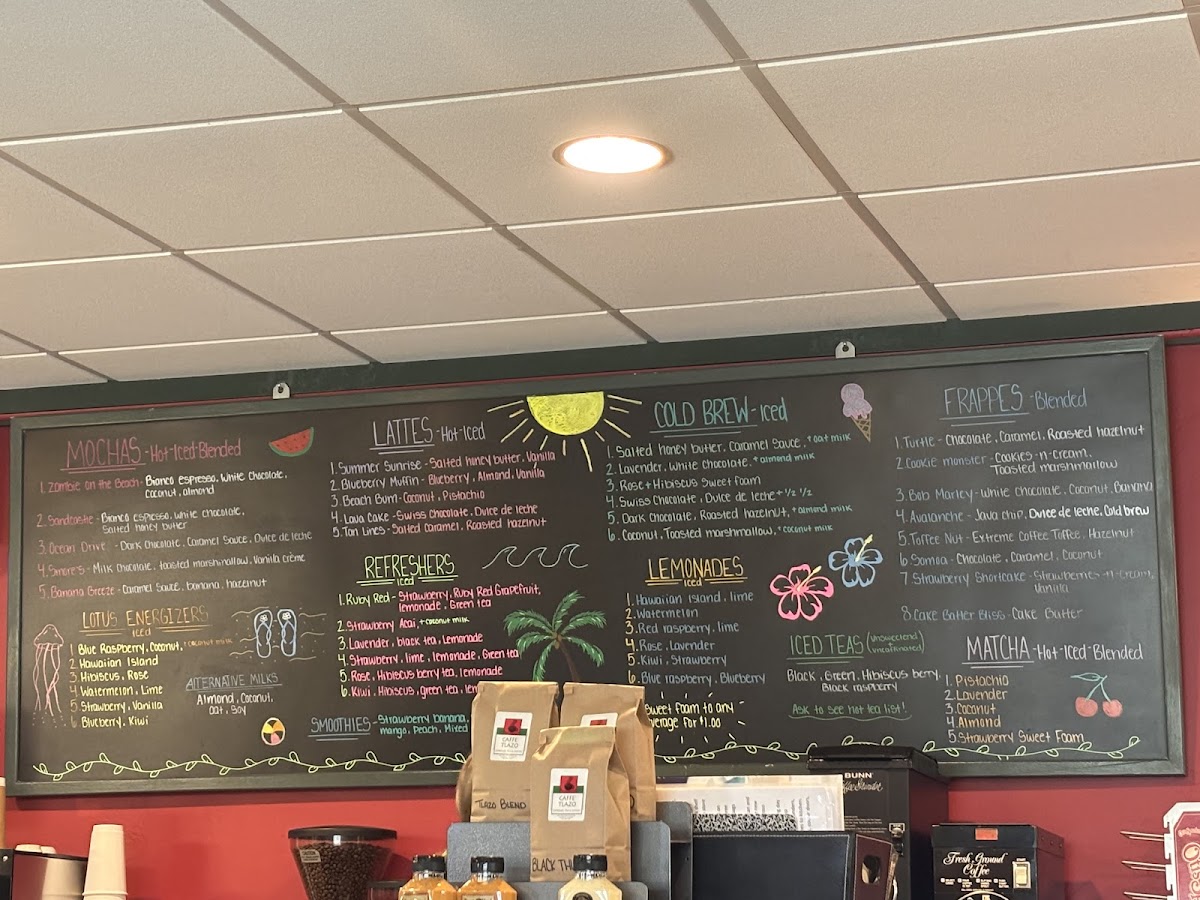 MOCHAS - Hot-Iced-Blended
1. Zombie on the Beach - Bianco espresso, White Chocolate,
Coconut, almond
2. Sandcastle - Bianco espresso, White chocolate,
Salted honey butter
3. Ocean Drive - Dark Chocolate, Caramel Sauce, Dulce de leche
4. Smores - Milk chocolate, toasted marshmallow, Vanilla crème
5. Banana Breeze - Caramel Sauce, banana, hazelnut
LOTUS ENERGIZERS
Iced
1. Blue Raspberry, Coconut, + coconut milk
2. Hawaiian Island
3. Hibiscus, Rose
4. Watermelon, Lime
5. Strawberry, Vanilla
6. Blueberry, Kiwi
ALTERNATIVE MILKS
Almond, Coconut,
Oat, Soy
LATTES - Hot-Iced
1. Summer Sunrise - Salted honey butter, Vanilla
2. Blueberry Muffin - Blueberry, Almond, Vanilla
3. Beach Bum - Coconut, Pistachio
4. Lava Cake - Swiss Chocolate, Dulce de leche
5. Tan Lines - Salted Caramel, Roasted hazelnut
REFRESHERS
iced
1. Ruby Red - Strawberry, Ruby Red Grapefruit,
lemonade, Green tea
2. Strawberry Acai, + coconut milk
3. Lavender, black tea, Lemonade
4. Strawberry, lime, lemonade, Green tea
5. Rose, Hibiscus berry tea, lemonade
6. Kiwi, Hibiscus, Green tea,
SMOOTHIES - Strawberry banana,
mango, Peach, Mixed
COLD BREW - Iced
1. Salted honey butter, Caramel Sauce, + oat milk
2. Lavender, White Chocolate, + almond milk
3. Rose + Hibiscus Sweet foam
4. Swiss Chocolate, Dulce de leche + 1/2 1/2
5. Dark Chocolate, Roasted hazelnut, + almond milk
6. Coconut, Toasted marshmallow, + coconut milk
LEMONADES
iced
1. Hawaiian Island, lime
2. Watermelon
3. Red raspberry, lime
4. Rose, Lavender
5. Kiwi, Strawberry
6. Blue raspberry, Blueberry
Sweet foam to any
for $1.00
ICED TEAS (unsweetened
uncaffeinated)
Black, Green, Hibiscus berry,
Black raspberry
Ask to see hot tea list!
FRAPPES - Blended
1. Turtle - Chocolate, Caramel, Roasted hazelnut
2. Cookie monster - Cookies-n-Cream,
Toasted marshmallow
3. Bob Marley - White chocolate, Coconut, Banana
4. Avalanche - Java chip, Dulce de leche, Cold brew
5. Toffee Nut - Extreme Coffee Toffee, Hazelnut
6. Samoa - Chocolate, Caramel, Coconut
7 Strawberry Shortcake - Strawberries-n-Cream,
Vanilla
8. Cake Batter Bliss - Cake Butter
MATCHA - Hot-Iced-Blended
1. Pistachio
2. Lavender
3. Coconut
4. Almond
5. Strawberry Sweet Foam
CAFFE
TLAZO
TLAZO BLEND
CAFFE
TLAZO
BLACK
BUNN
Fresh Ground
Coffee
START